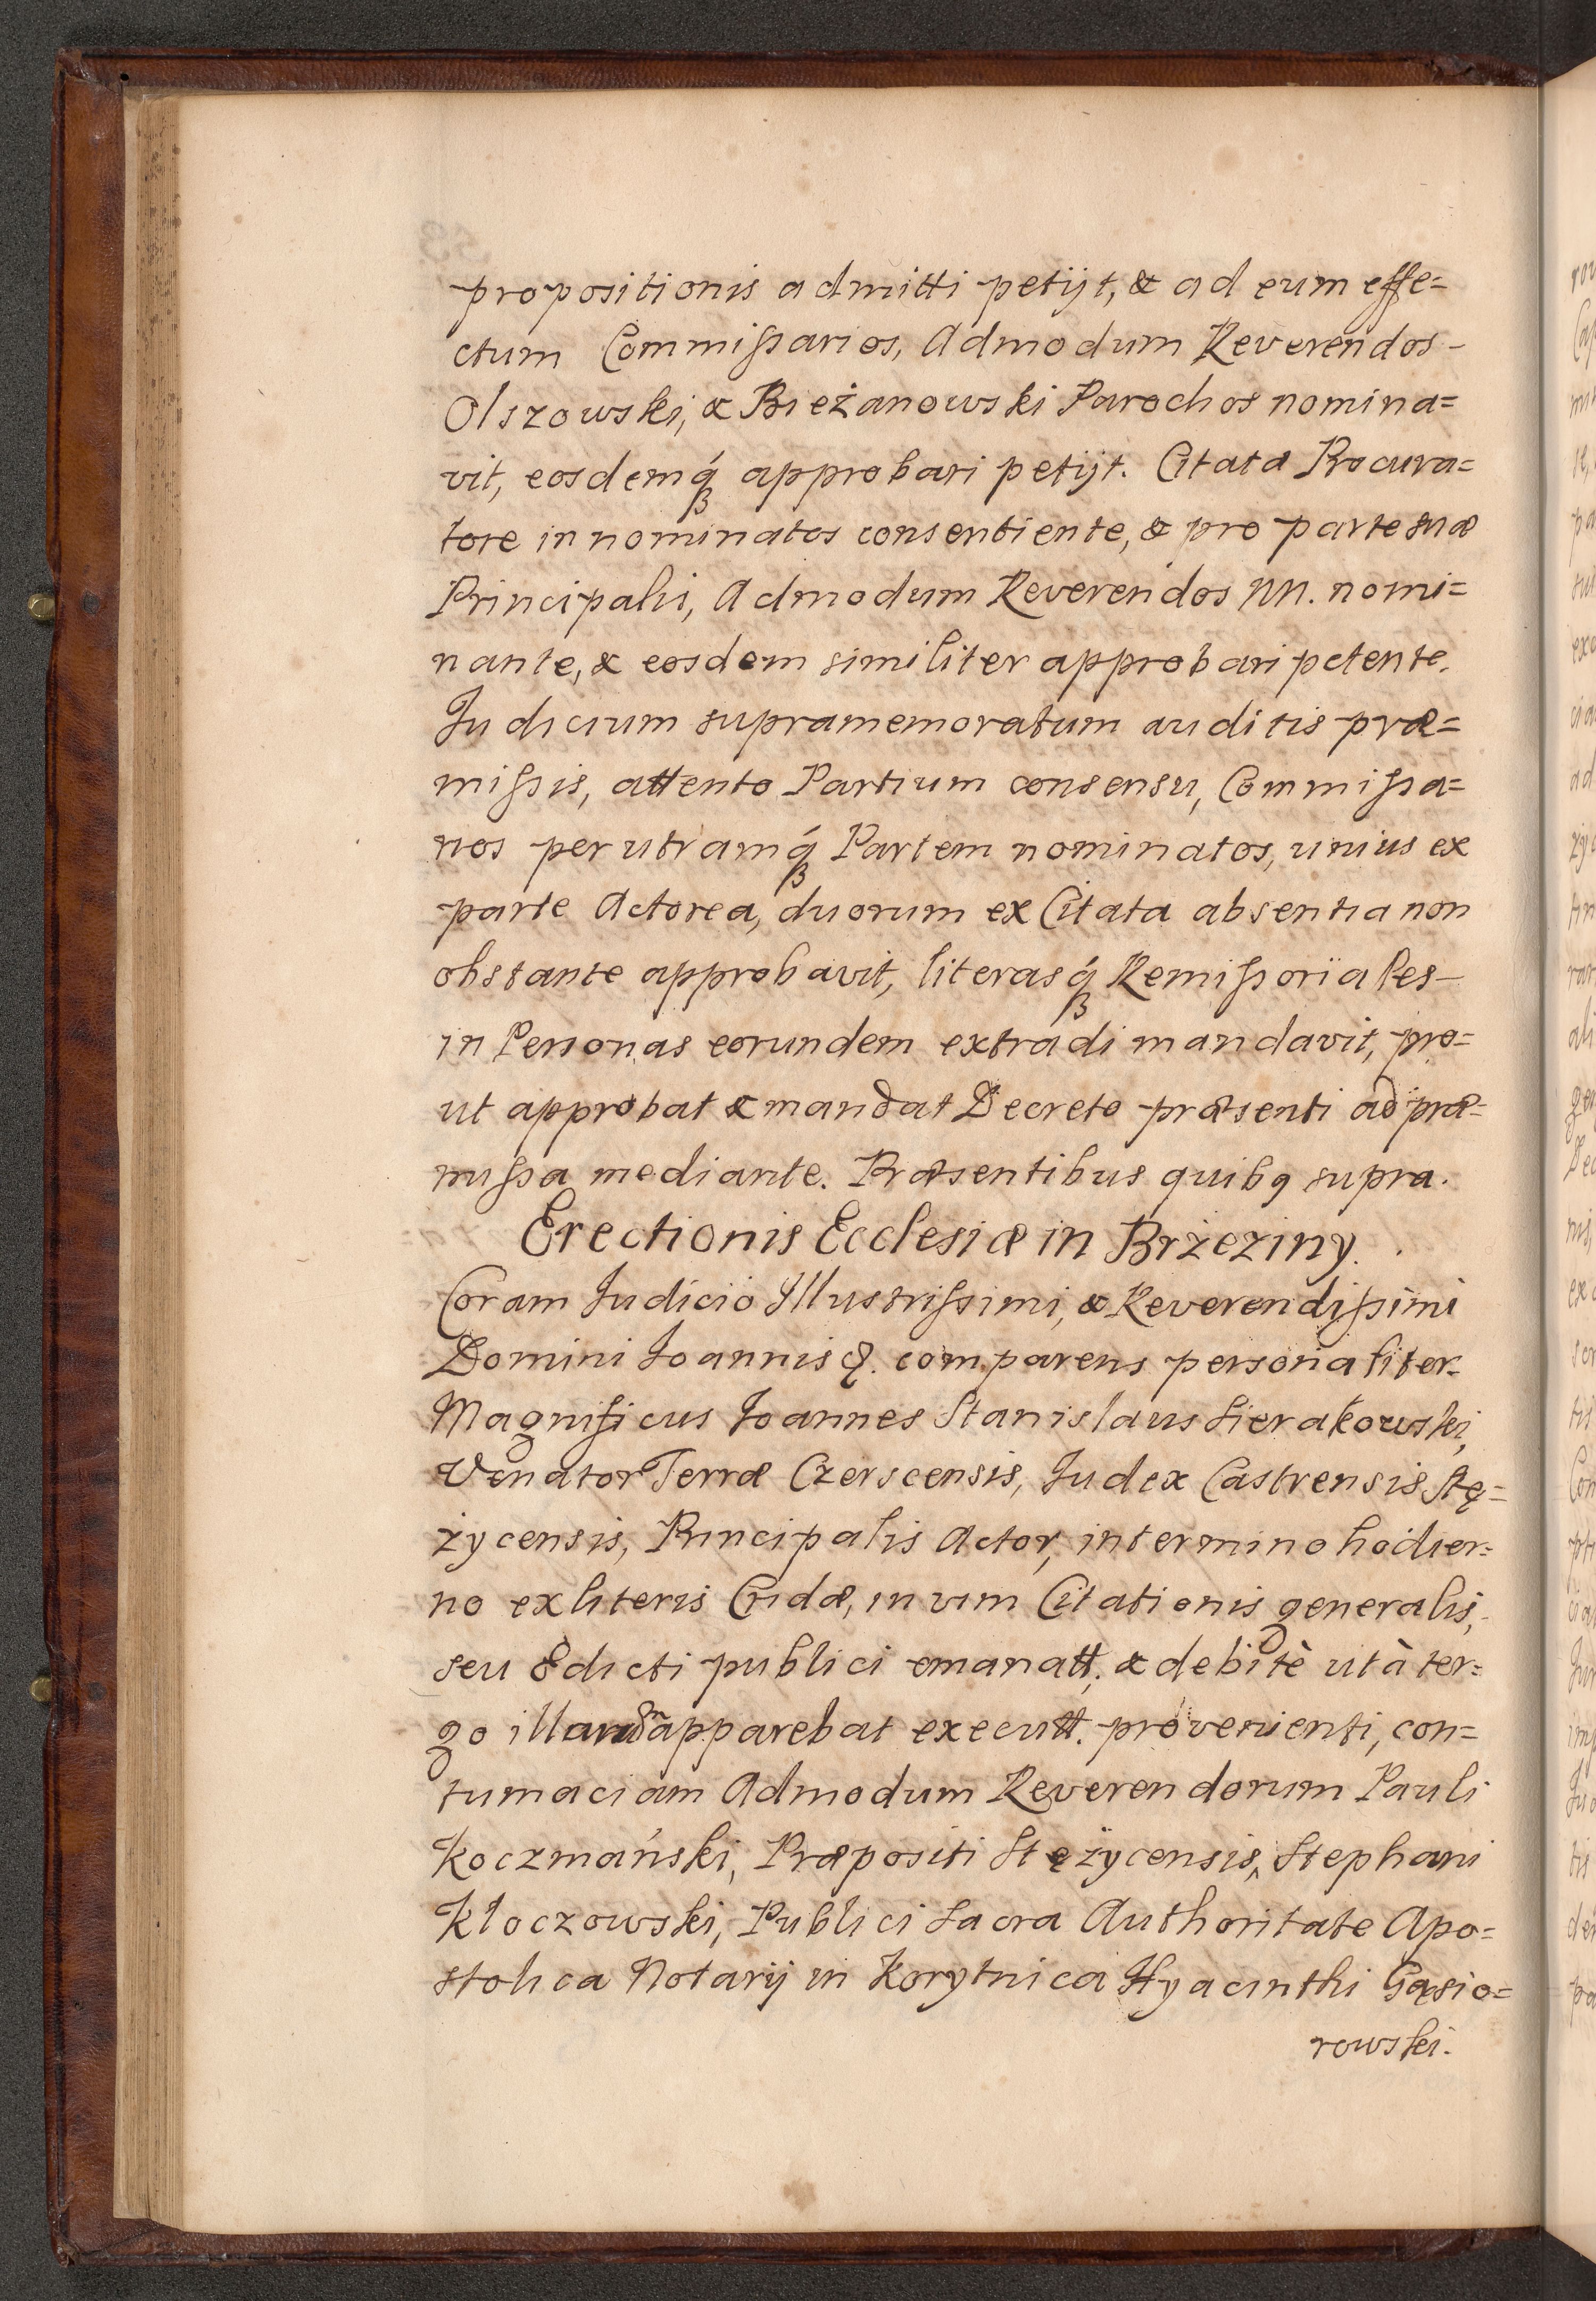 propositionis admitti petijt, & ad eum effe=
ctum Commißarios, Admodum Reverendos-
Olszowski, & Bieżanowski Parochos nomina=
vit, eosdemq́ꝫ approbari petijt. Citata Procura=
tore in nominatos consentiente, & pro parte suæ
Principalis, Admodum Reverendos NN. nomi=
nante, & eosdem similiter approbari petente.
Judicium supramemoratum auditis præ=
mißis, attento Partium consensu, Commißa=
rios per utramq́ꝫ Partem nominatos, unius ex
parte Actorea, duorum ex Citata absentia non
obstante approbavit, literasq́ꝫ Remißoriales-
in Personas eorundem extradi mandavit, pro=
ut approbat & mandat Decreto præsenti ad præ=
mißa mediante. Præsentibus quibꝯ supra.
Erectionis Ecclesiæ in Brżeziny.
Coram Judicio Illustrißimi, & Reverendißimi
Domini Joannis &. comparens personaliter-
Magnificus Joannes Stanislaus Sierakowski,
Venator Terræ Czerscensis, Judex Castrensis Stę=
życensis, Principalis Actor, in termino hodier=
no ex literis Cridæ, in vim Citationis generalis,
seu Edicti publici emanatt. & debitè ut à ter=
go apparebat executt. provenienti, con=
tumaciam Admodum Reverendorum Pauli
Koczmański, Præpositi Stężycensis, Stephani
Kłoczowski, Publici Sacra Authoritate Apo=
stolica Notarij in Korytnica Hyacinthi Gąsio=
rowski.